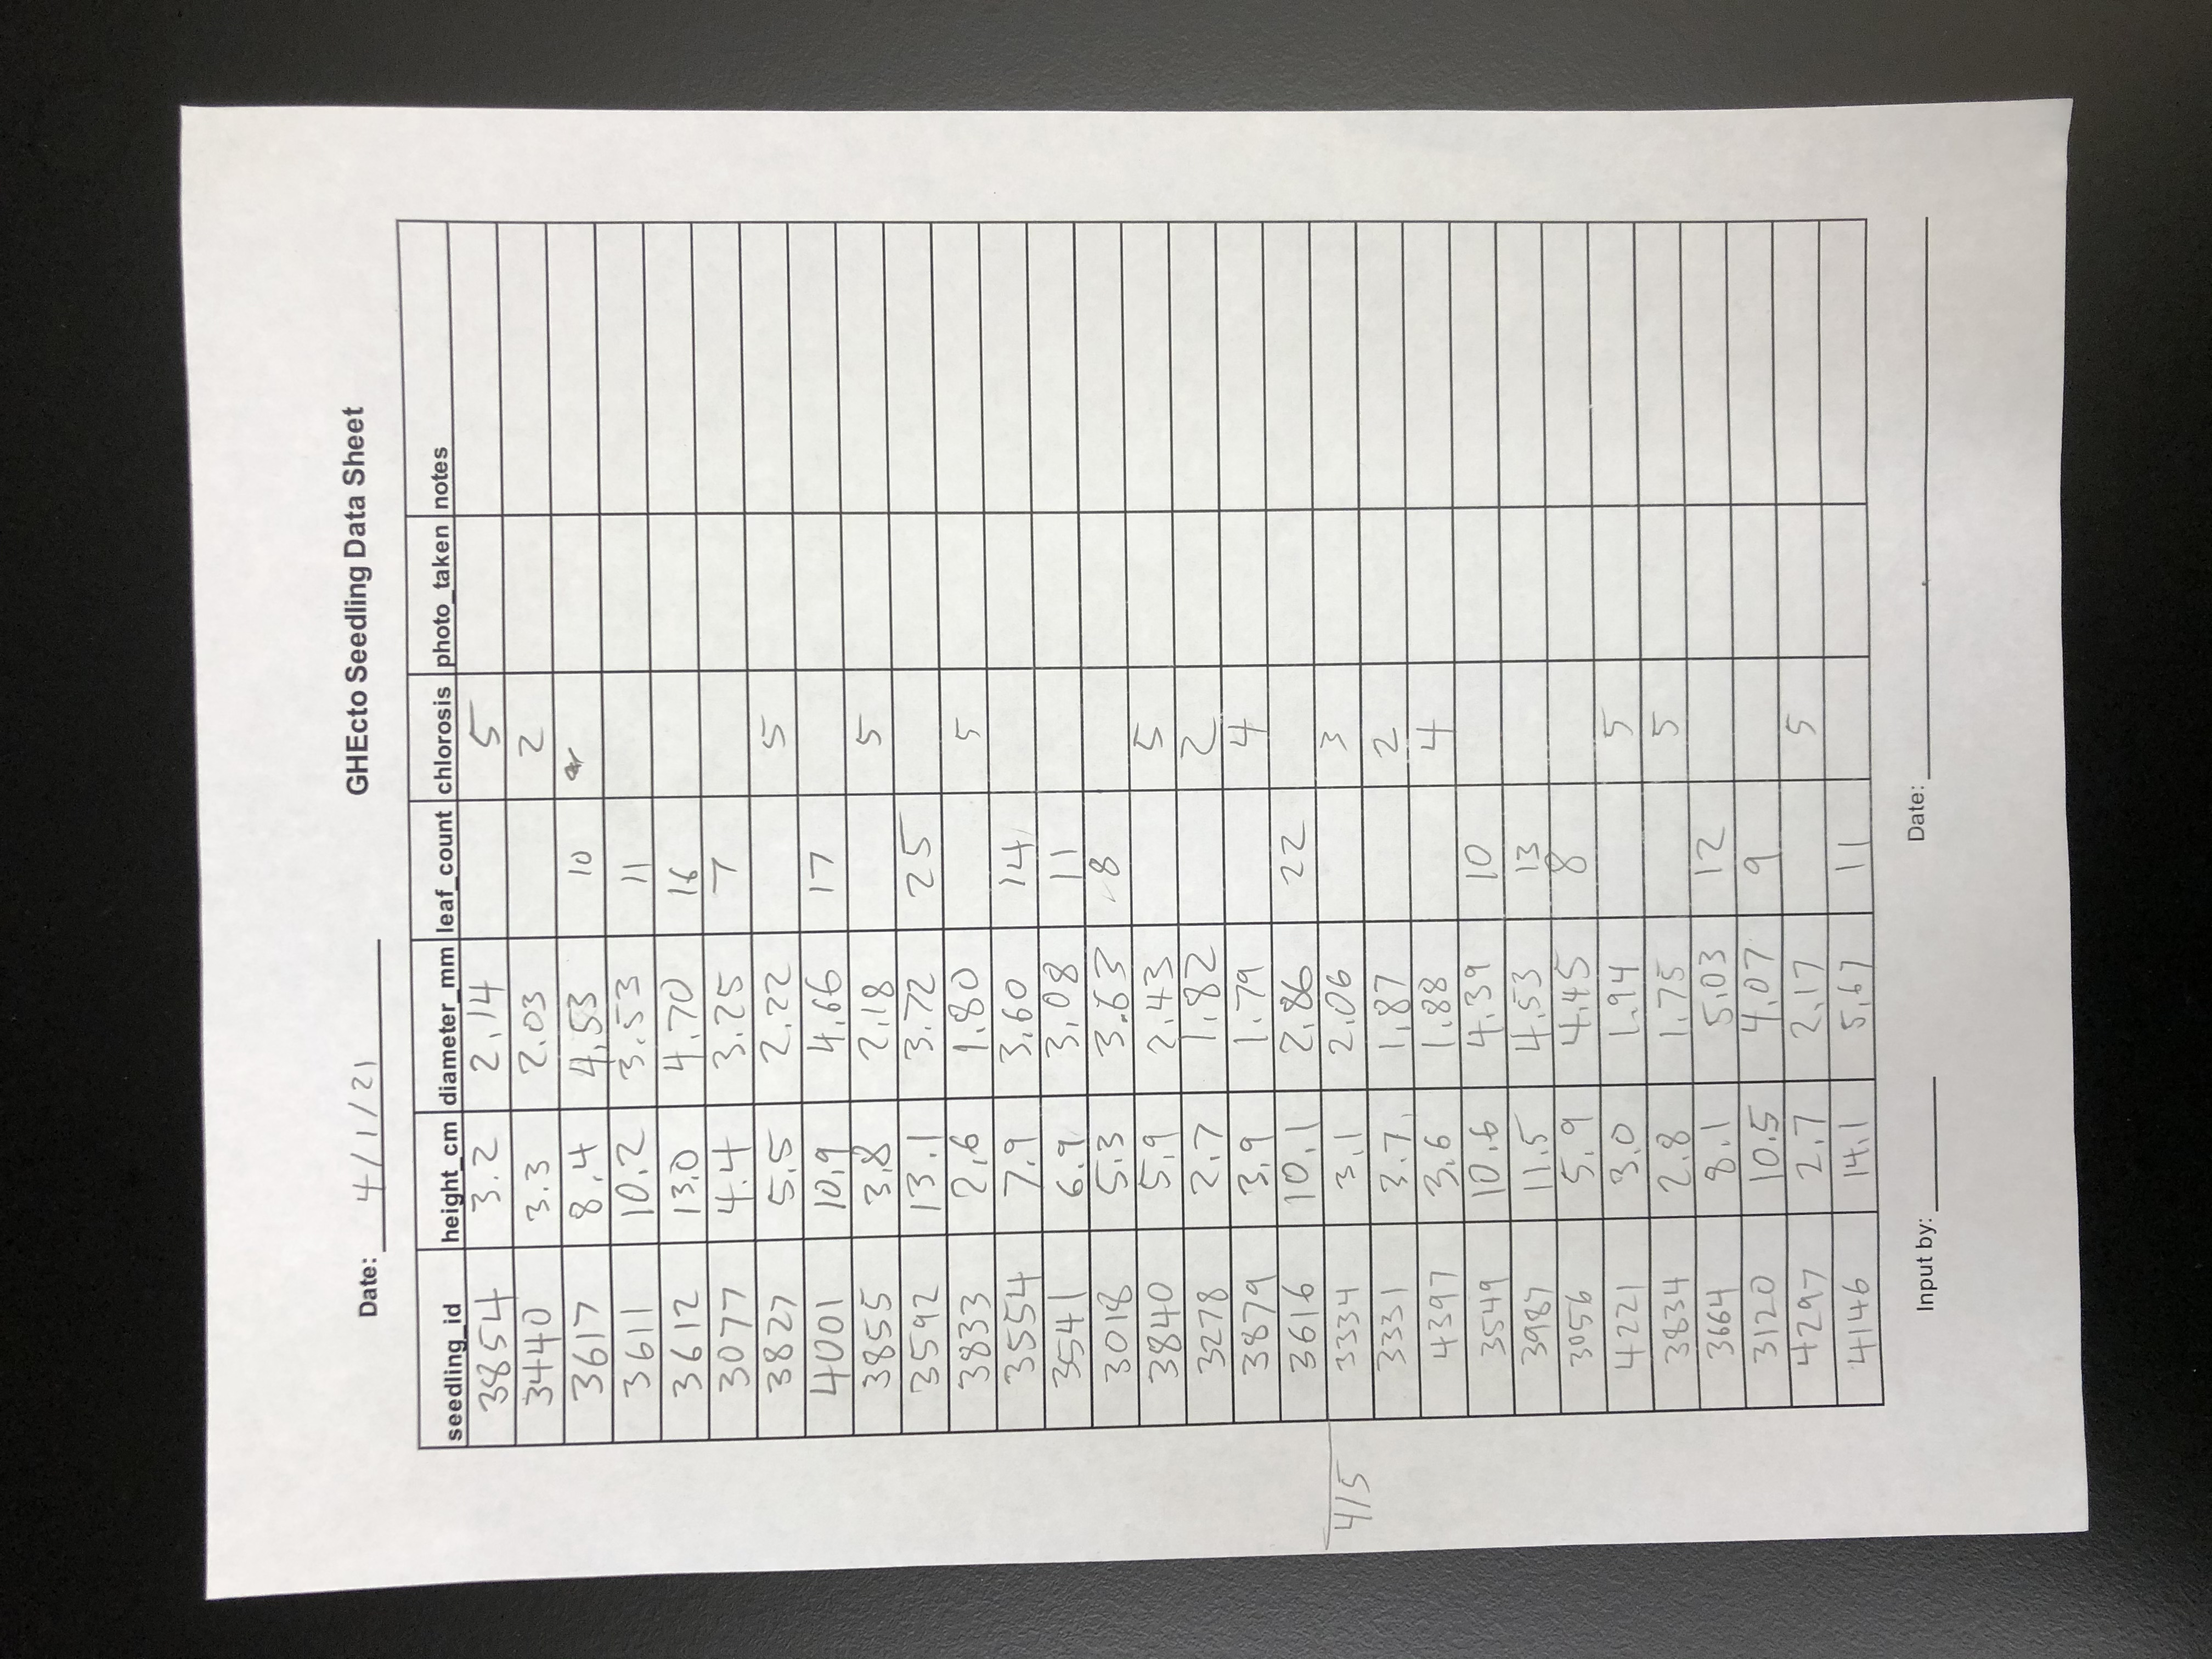 GHEcto Seedling Data Sheet
Date: 4/1/21
seedling_id height_cm diameter_mm leaf_count chlorosis photo_taken notes
3854 3.2 2.14 5
3440 3.3 2.03 2
3617 8.4 4.53 10
3611 10.2 3.53 11
3612 13.0 4.70 16
3077 4.4 3.25 7
3827 5.5 2.22 5
4001 10.9 4.66 17
3855 3.8 2.18 5
3592 13.1 3.72 25
3833 2.6 1.80 5
3554 7.9 3.60 14
3541 6.9 3.08 11
3018 5.3 3.63 8
3840 5.9 2.43 5
3278 2.7 1.82 2
3879 3.9 1.79 4
3616 10.1 2.86 22
4/5 3334 3.1 2.06 3
3331 3.7 1.87 2
4397 3.6 1.88 4
3549 10.6 4.39 10
3987 11.5 4.53 13
3056 5.9 4.45 8
4221 3.0 1.94 5
3834 2.8 1.75 5
3664 8.1 5.03 12
3120 10.5 4.07 9
4297 2.7 2.17 5
4146 14.1 5.67 11
Input by: Date: